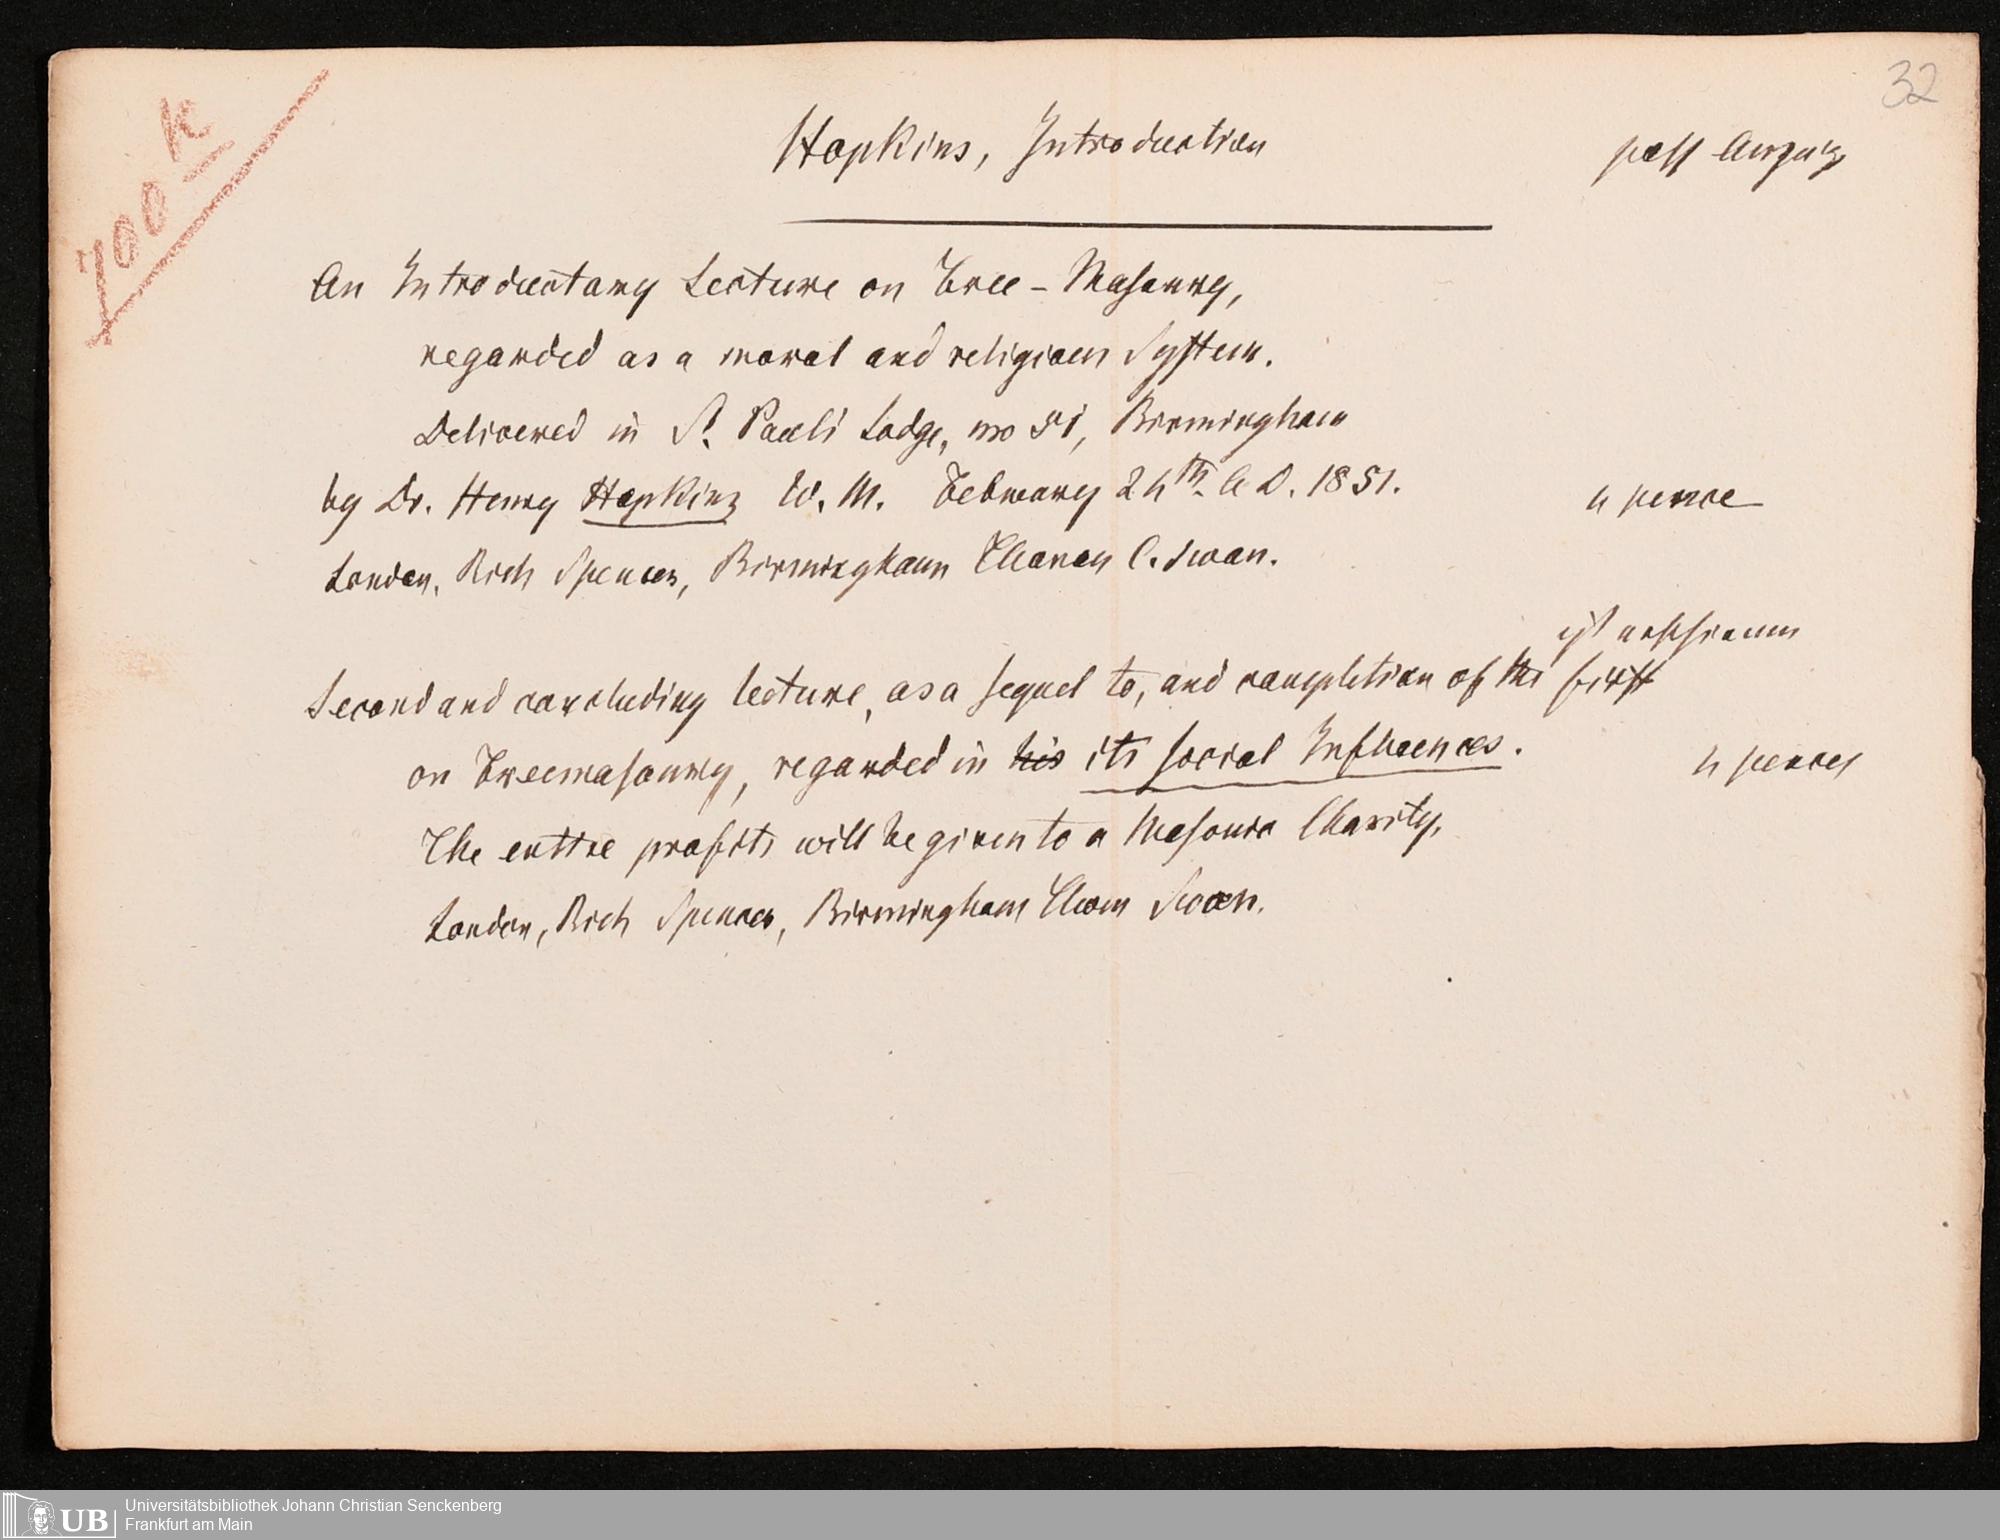 32
700 K
Hopkins, Introduction
An Introductory Lecture on Free-Masonry,
regarded as a moral and religious System.
Delivered in St. Paul's Lodge, no 51, Birmingham
by Dr. Henry Hopkins W. M. February 24th. A D. 1851.
4 pence
London, Rich Spencer, Birmingham Thomas C. Swan.
ist erschienen
Second and concluding lecture, as a sequel to, and completion of the first
on Freemasonry, regarded in his its social Influences.
4 pences
The entire profits will be given to a Masonic Charity,
London, Rich Spencer, Birmingham Thom Swan.
Universitätsbibliothek Johann Christian Senckenberg
Frankfurt am Main
UB